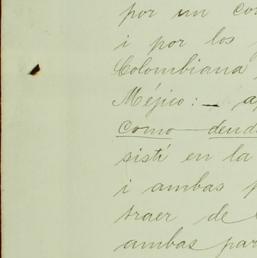 por un con
i por los
Colombiana
Méjico:— a
como dend
sistí en la
i ambas p
traer de
ambas par